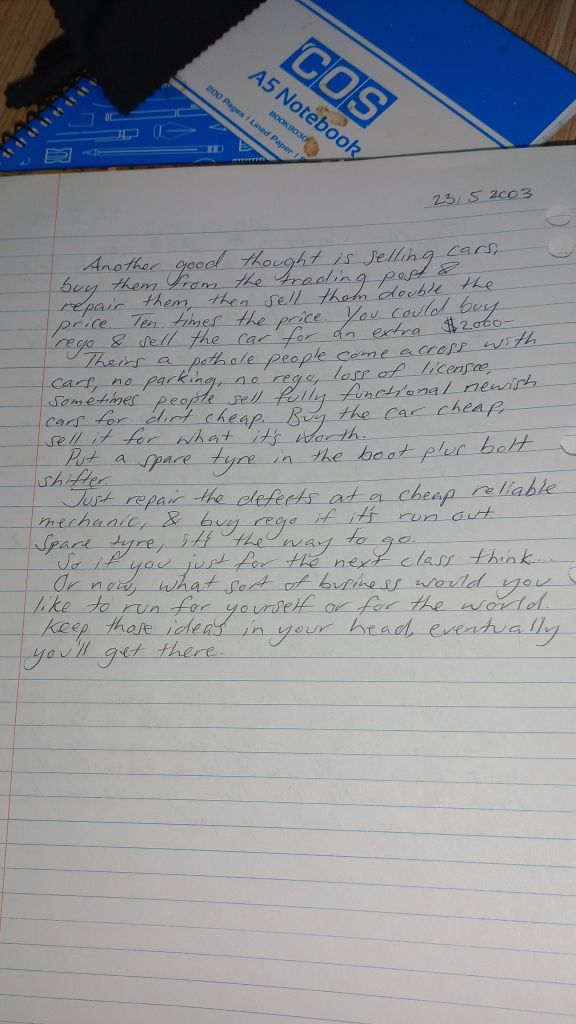 COS
A5 Notebook
BOOK903
200 Pages | Lined Paper |
23, 5 2003
Another good thought is selling cars,
buy them from the trading post &
repair them, then sell them double the
price. Ten times the price. You could buy
rego & sell the car for an extra $2000-
Theirs a pothole people come across with
cars, no parking, no rego, loss of licensce,
Sometimes people sell fully functional newish
cars for dirt cheap. Buy the car cheap,
sell it for what it's worth.
Put a spare tyre in the boot plus bolt
shifter.
Just repair the defects at a cheap reliable
mechanic, & buy rego if it's run out.
Spare tyre, it's the way to go.
So if you just for the next class think...
Or now, what sort of business would you
like to run for yourself or for the world.
Keep those ideas in your head, eventually
you'll get there.